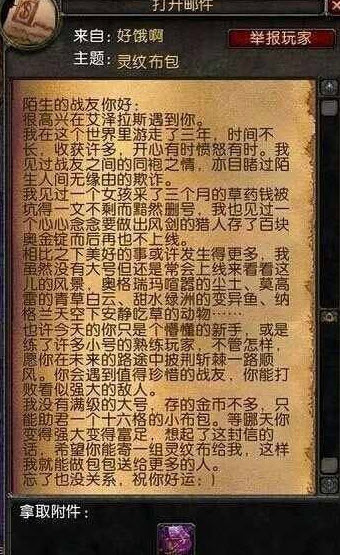 打开邮件
来自：好饿啊
举报玩家
主题：灵纹布包
陌生的战友你好：
很高兴在艾泽拉斯遇到你。
我在这个世界里游走了三年，时间不
长，收获许多，开心有时愤怒有时。我
见过战友之间的同袍之情，亦目睹过陌
生人间无缘由的欺诈。
我见过一个女孩采了三个月的草药钱被
坑得一文不剩而黯然删号，我也见过一
个心心念念要做出风剑的猎人存了四块
奥金锭而后再也不上线。
相比之下美好的事或许发生得更多，我
虽然没有大号但还是常会上线来看看这
儿的风景，奥格瑞玛喧嚣的尘土、莫高
雷的青草白云、甜水绿洲的变异鱼、纳
格兰天空下安静吃草的动物……
也许今天的你只是个懵懂的新手，或是
练了许多小号的熟练玩家，不管怎样，
愿你在未来的路途中披荆斩棘一路顺
风。你会遇到值得珍惜的战友，你能打
败看似强大的敌人。
我没有满级的大号，存的金币不多，只
能助君一个十六格的小布包。等哪天你
变得强大变得富足，想起了这封信的
话，希望你能寄一组灵纹布给我，这样
我就能做包包送给更多的人。
忘了也没关系，祝你好运：）
拿取附件：